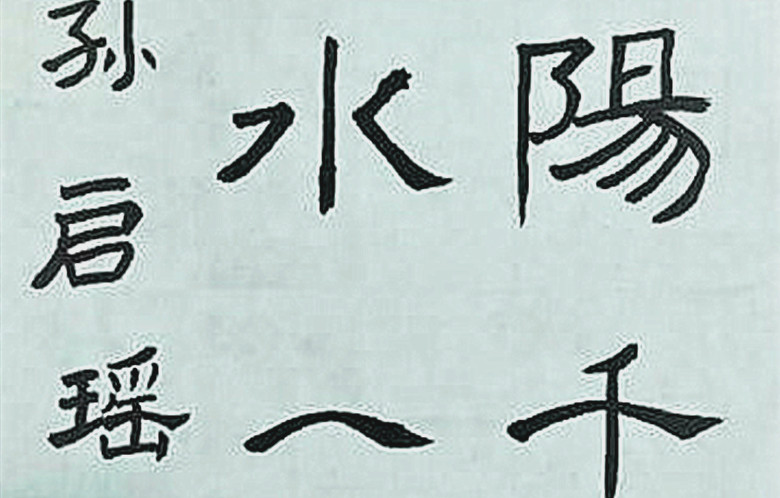 陽千
水一
孙启瑶